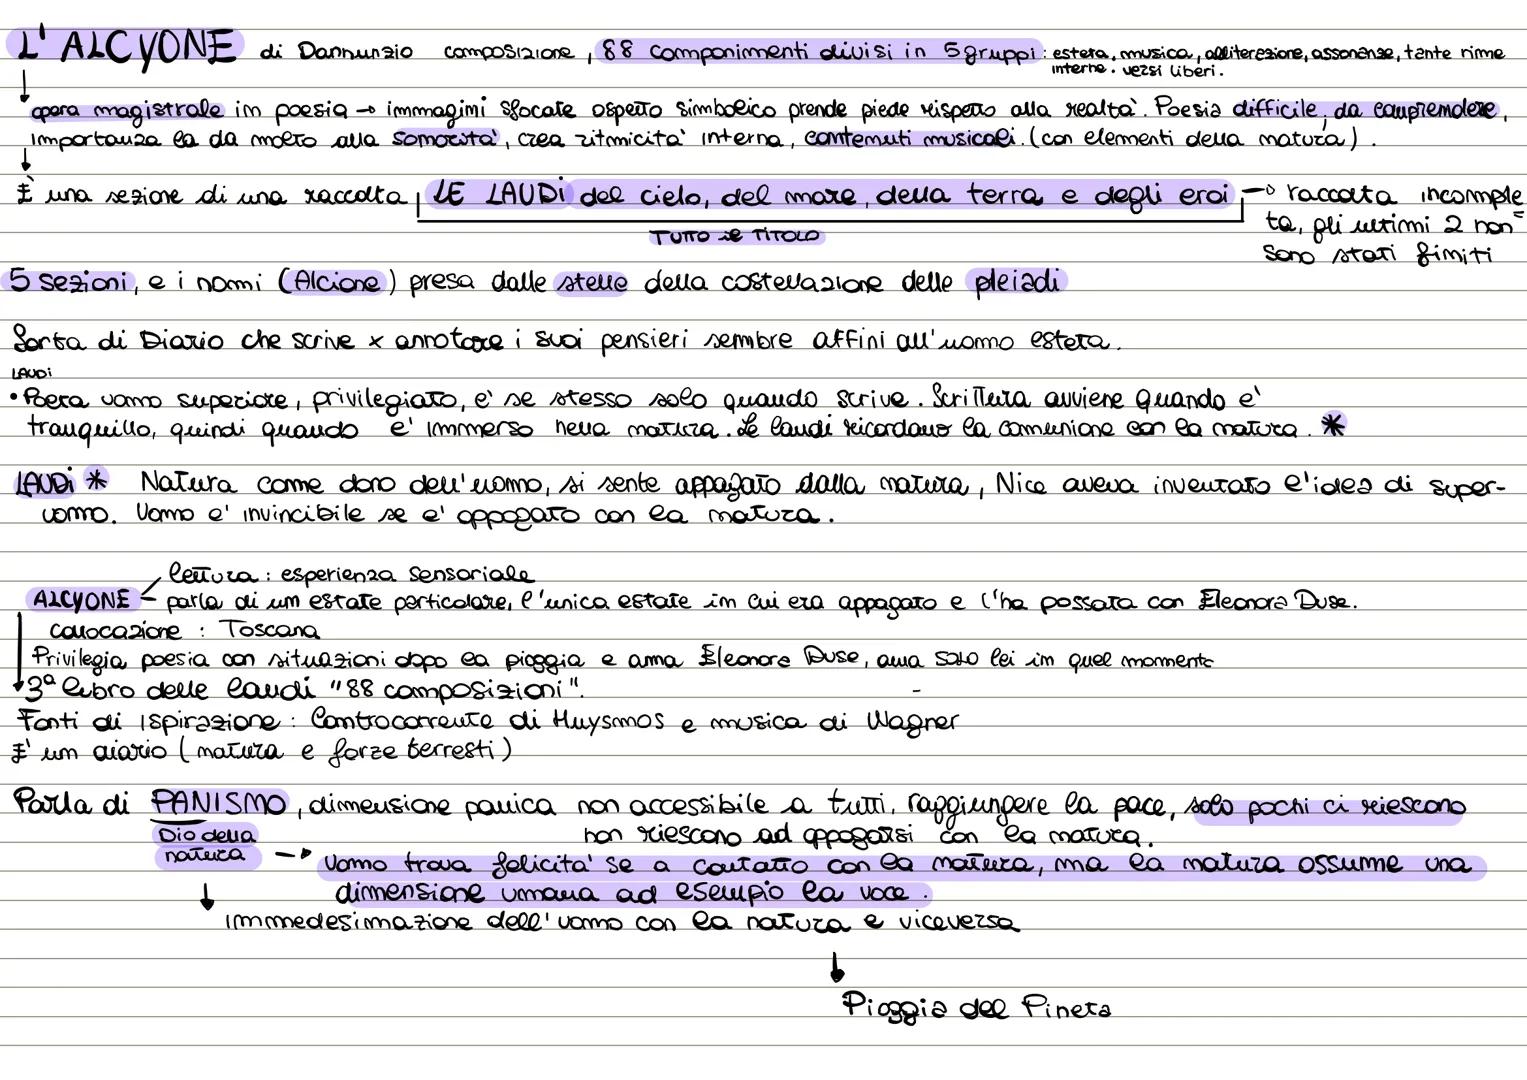 L'ALCYONE di Dannunzio composizione, 88 componimenti divisi in 5 gruppi: esteta, musica, allitterazione, assonanze, tante rime
interne. versi liberi.
opera magistrale in poesia → immagimi sfocate aspetto simbolico prende piede rispetto alla realtà. Poesia difficile da comprendere,
importanza la da molto alla sonorità, crea ritmicita' interna, contenuti musicali. (con elementi della natura).
È una sezione di una raccolta LE LAUDI del cielo, del mare, della terra e degli eroi → raccolta incomple
TUTTO il TITOLO
ta, gli ultimi 2 non
sono stati finiti
5 sezioni, e i nomi (Alcione) presa dalle stelle della costellazione delle pleiadi
Sorta di Diario che scrive x annotare i suoi pensieri sembre affini all'uomo esteta.
LAUDI
• Poeta uomo superiore, privilegiato, e' se stesso solo quando scrive. Scrittura avviene quando e'
tranquillo, quindi quando e' immerso nella natura. Le laudi ricordano la comunione con la natura. *
LAUDI * Natura come dono dell'uomo, si sente appagato dalla natura, Nice aveva inventato l'idea di super-
uomo. Uomo e' invincibile se e' appagato con la natura.
lettura: esperienza sensoriale
ALCYONE parla di um estate particolare, l'unica estate in cui era appagato e l'ha passata con Eleonora Duse.
collocazione: Toscana
Privilegia poesia con situazioni dopo la pioggia e ama Eleonora Duse, ama solo lei in quel momento
3ª libro delle laudi "88 composizioni".
Fonti di ispirazione: Controcorrente di Huysmos e musica di Wagner
E' um diario (natura e forze terresti)
Parla di PANISMO, dimensione panica non accessibile a tutti, raggiungere la pace, solo pochi ci riescono
Dio della non riescono ad appagarsi con la natura.
natura → Uomo trova felicita' se a contatto con la natura, ma la natura assume una
dimensione umana ad esempio la voce.
↓ immedesimazione dell'uomo con la natura e viceversa
↓
Pioggia del Pineta